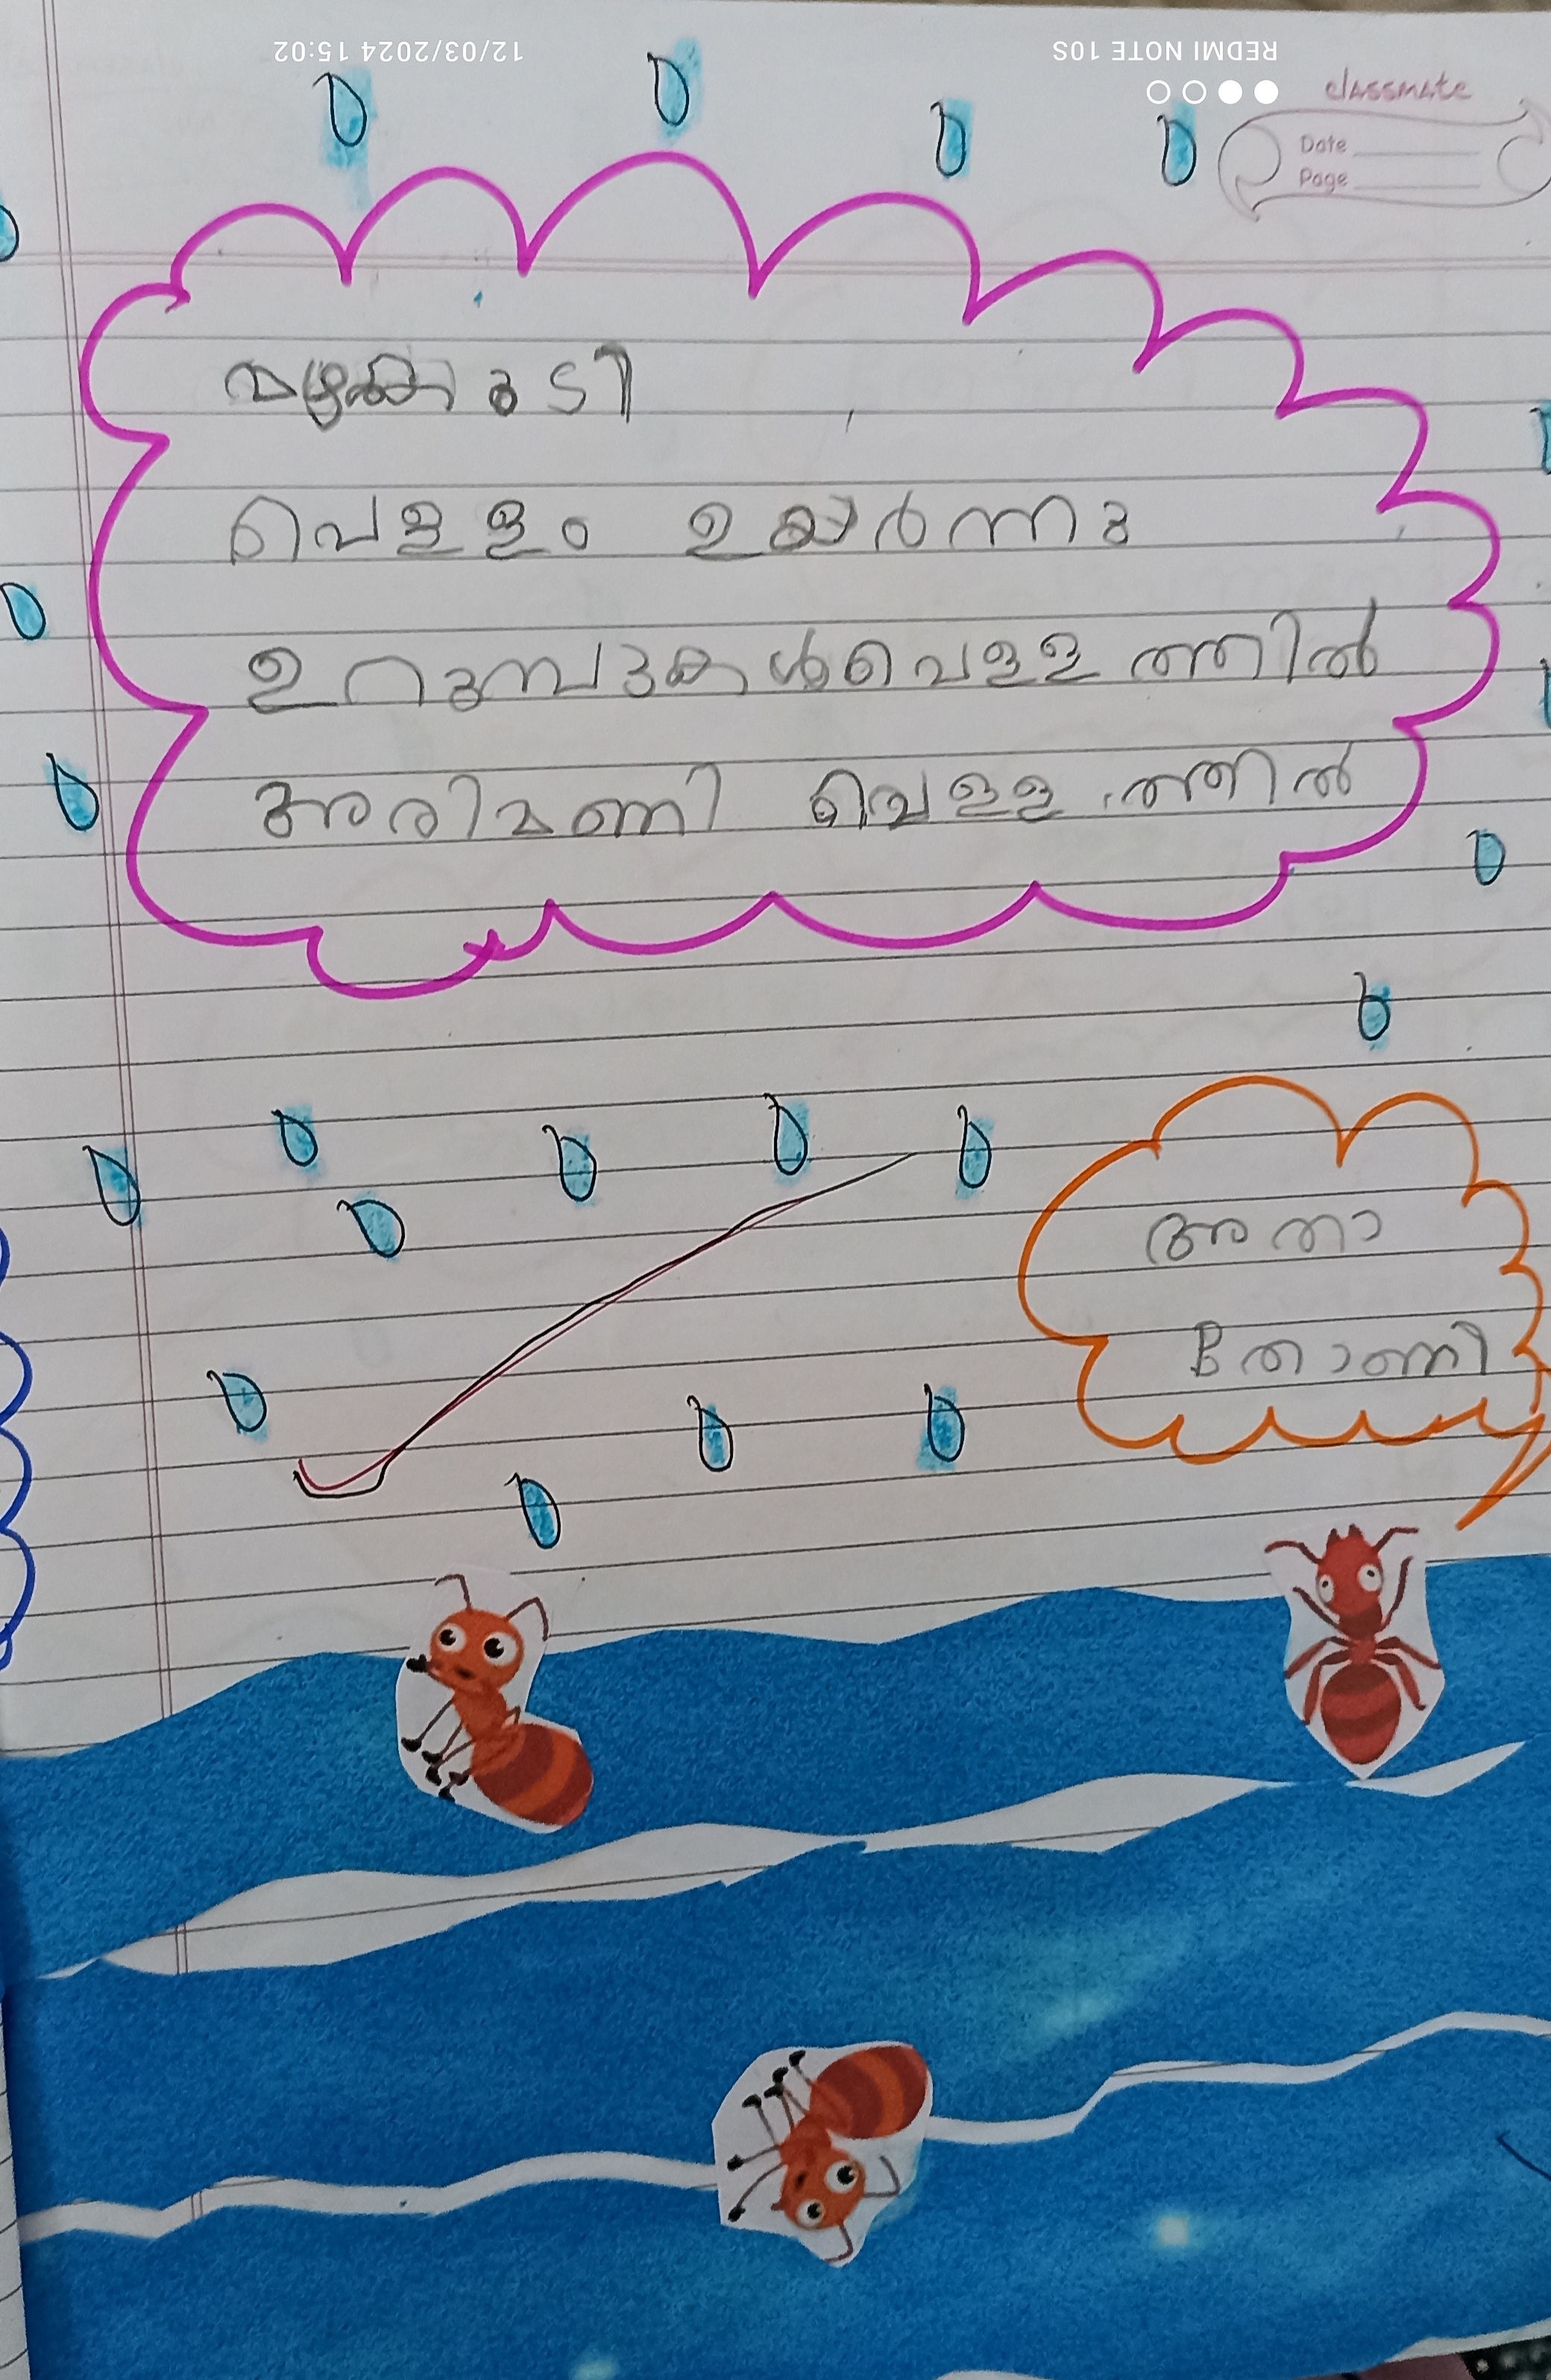 12/03/2024 15:02
REDMI NOTE 10S
classmate
Date
Page
മഴകൂടി
വെള്ളം ഉയർന്നു
ഉറുമ്പുകൾ വെള്ളത്തിൽ
അരിമണി വെള്ളത്തിൽ
അതാ
തോണി